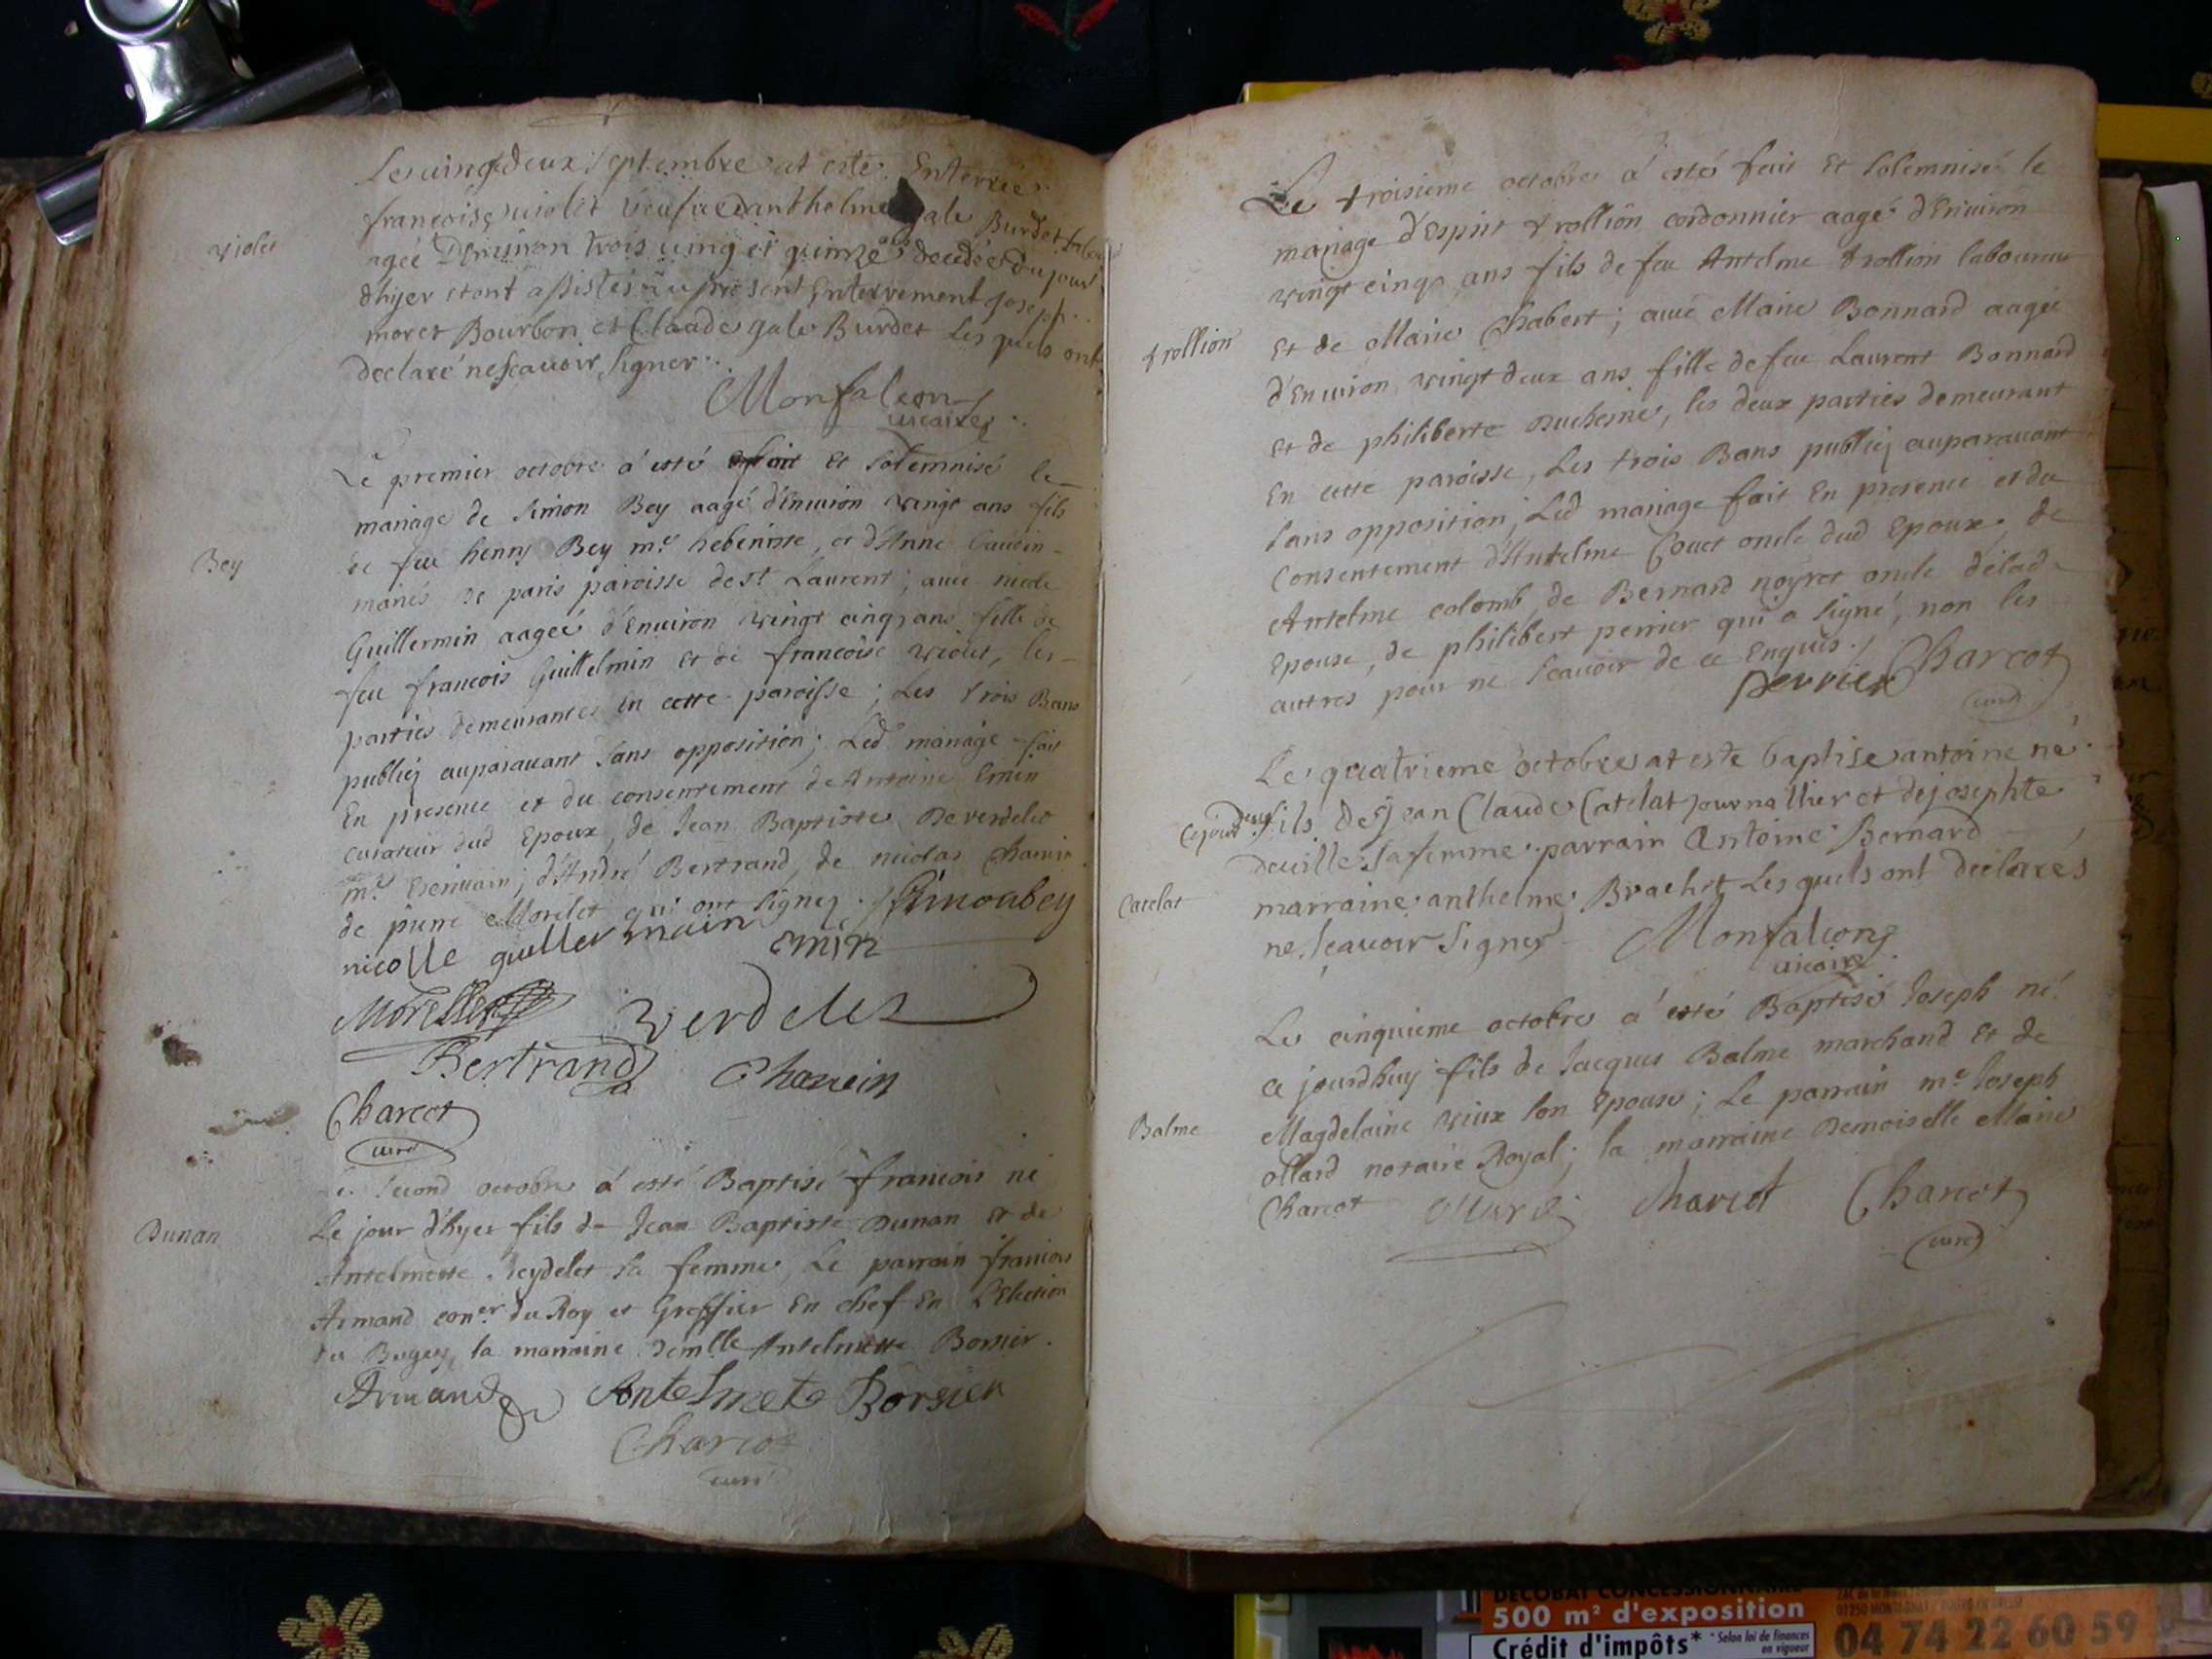 Le uingdeux septembre at esté Enterrée
françoise uiolet Veufue danthelme gale Burdet
violet
agée Denuiron trois uing et quinze ans decedée du jour
dhyer etont assistés au present Enterrement joseph
moret Bourbon et Claude gale Burdet Les quels ont
declaré ne scauoir signer
Monfalcon
uicaire
Le premier octobre a esté fait et solemnisé le
mariage de simon Bey aagé d'Enuiron vingt ans fils
Bey
de feu henry Bey me hebeniste, et d'Anne Gaudin
mariés de paris paroisse de st Laurent; auec nicole
Guillermin aagée d'Enuiron vingt cinq ans fille de
feu francois Guillelmin et de francoise violet, les
parties demeurantes En cette paroisse; Les trois Bans
publiez auparauant sans opposition; Led mariage fait
En presence et du consentement de Antoine Emin
curateur dud Epoux, de Jean Baptiste Deverdelet
me Escriuain; d'André Bertrand, de nicolas Chanein
de pierre Morelet qui ont signez. Simonbey
nicolle gullermain emin
Morellet Verdelet
Bertrand Chanein
Charcot
curé
Le second octobre a esté Baptisé francois né
Dunan
Le jour d'hyer fils de Jean Baptiste Dunan et de
Antelmette Reydelet sa femme, Le parrain francois
Armand coner du Roy et Greffier En chef En L'Election
du Bugey, la marraine demlle Antelmette Borsier.
Armand Antelmete Borsier
Charcot
curé
Le troisieme octobre a esté fait Et solemnisé le
mariage d'Esprit trollion cordonnier aagé d'Enuiron
vingt cinq ans fils de feu Antelme trollion laboureur
trollion
Et de Marie Chabert; auec Marie Bonnard aagée
d'Enuiron vingt deux ans fille de feu Laurent Bonnard
Et de philiberte Duchesne, les deux parties demeurant
En cette paroisse, Les trois Bans publiez auparauant
sans opposition; Led mariage fait En presence et du
consentement d'Antelme Couet oncle dud Epoux, de
Antelme colomb, de Bernard noyret oncle de lad
Epouse, de philibert perrier qui a signé, non les
autres pour ne scauoir de ce Enquis.
perrier Charcot
curé
Le quatrieme octobre at este baptise antoine né
ce jourdhuy fils De Jean Claude Catelat journallier et de josephte
deuille sa femme parrain Antoine Bernard
Catelat
marraine anthelme Brachet Les quels ont declarés
ne scauoir signer Monfalcon
uicaire
Le cinquieme octobre a esté Baptisé Joseph né
ce jourdhuy fils de Jacques Balme marchand et de
Balme
Magdelaine vieux son Epouse; Le parrain me Joseph
ollard notaire Royal; la marraine Demoiselle Marie
Charcot Ollard Charcot Charcot
curé
DECOBAT CONCESSIONNAIRE
500 m² d'exposition
Crédit d'impôts* *Selon loi de finances
en vigueur
04 74 22 60 59